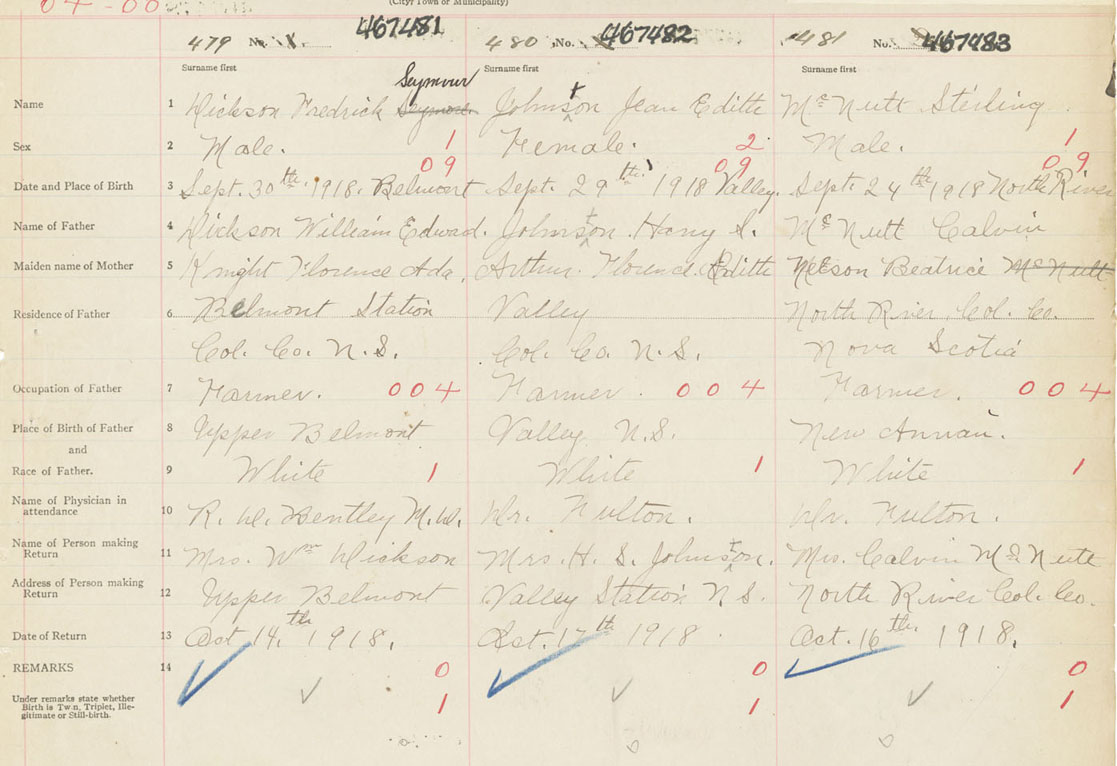 04-00
(City, Town or Municipality)
479 No. 467481 480 No. 467482 481 No. 467483
Surname first Surname first Surname first
Seymour
Name 1 Dickson Fredrick Seymore Johnston Jean Edith McNutt Sterling
Sex 2 Male. 1 Female. 2 Male. 1
09 09 09
Date and Place of Birth 3 Sept. 30th 1918. Belmont Sept. 29th 1918 Valley. Sept. 24th 1918 North River
Name of Father 4 Dickson William Edward. Johnston Harry S. McNutt Calvin
Maiden name of Mother 5 Knight Florence Ada, Arthur Florence Edith Nelson Beatrice McNutt
Residence of Father 6 Belmont Station Valley North River Col. Co.
Col. Co. N.S. Col. Co. N.S. Nova Scotia
Occupation of Father 7 Farmer. 004 Farmer. 004 Farmer. 004
Place of Birth of Father 8 Upper Belmont Valley N.S. New Annan.
and
Race of Father. 9 White 1 White 1 White 1
Name of Physician in
attendance 10 R. D. Bentley M.D. Dr. Fulton. Dr. Fulton.
Name of Person making
Return 11 Mrs. Wm Dickson Mrs. H. S. Johnston. Mrs. Calvin McNutt
Address of Person making
Return 12 Upper Belmont Valley Station N.S. North River Col. Co.
Date of Return 13 Oct. 14th 1918. Oct. 17th 1918 Oct. 16th 1918.
REMARKS 14 0 0 0
Under remarks state whether
Birth is Twin, Triplet, Ille-
gitimate or Still-birth. 1 1 1